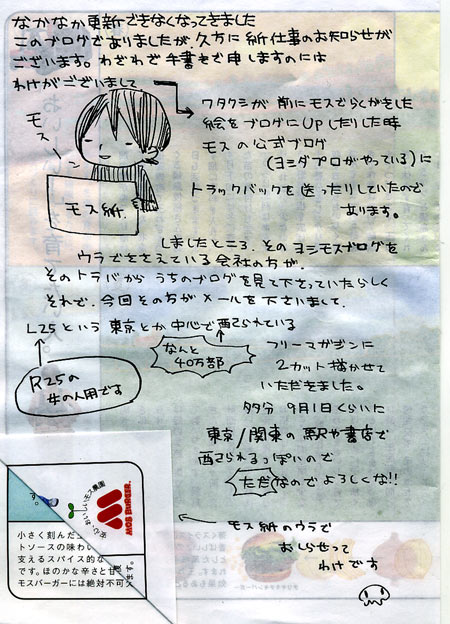 なかなか更新できなくなってきました
このブログでありましたが、久方に紙仕事のお知らせが
ございます。わざわざ手書きで申しますのには
わけがございまして
モスーン
モス紙
ワタクシが前にモスでらくがきした
絵をブログにUpしたりした時
モスの公式ブログ
(ヨシダプロがやっている)に
トラックバックを送ったりしていたので
あります。
しましたところ、そのヨシモスブログを
ウラでささえている会社の方が、
そのトラバからうちのブログを見て下さっていたらしく
それで、今回その方がメールを下さいまして、
L25という東京とか中心で配られている
なんと
40万部
R25の
女の人用です
フリーマガジンに
2カット描かせて
いただきました。
多分 9月1日くらいに
東京/関東の駅や書店で
配られるっぽいので
ただなのでよろしくな!!
モス紙のウラで
おしらせって
わけです
MOS BURGER
小さく刻んだ
トソースの味わい
支えるスパイス的な
です。ほのかな辛さと甘
モスバーガーには絶対不可
ます。